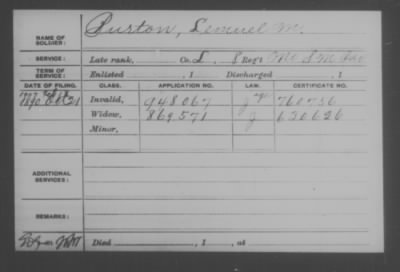 NAME OF SOLDIER: Purton, Lemuel M.
SERVICE: Late rank, Co. L, 8 Reg't Mo. S. M. Cav
TERM OF SERVICE: Enlisted , 1 Discharged , 1
DATE OF FILING. CLASS. APPLICATION NO. LAW. CERTIFICATE NO.
1890 Invalid, 948067 760736
Widow, 869571 J 630626
Minor,
ADDITIONAL SERVICES:
REMARKS:
Died , 1 , at